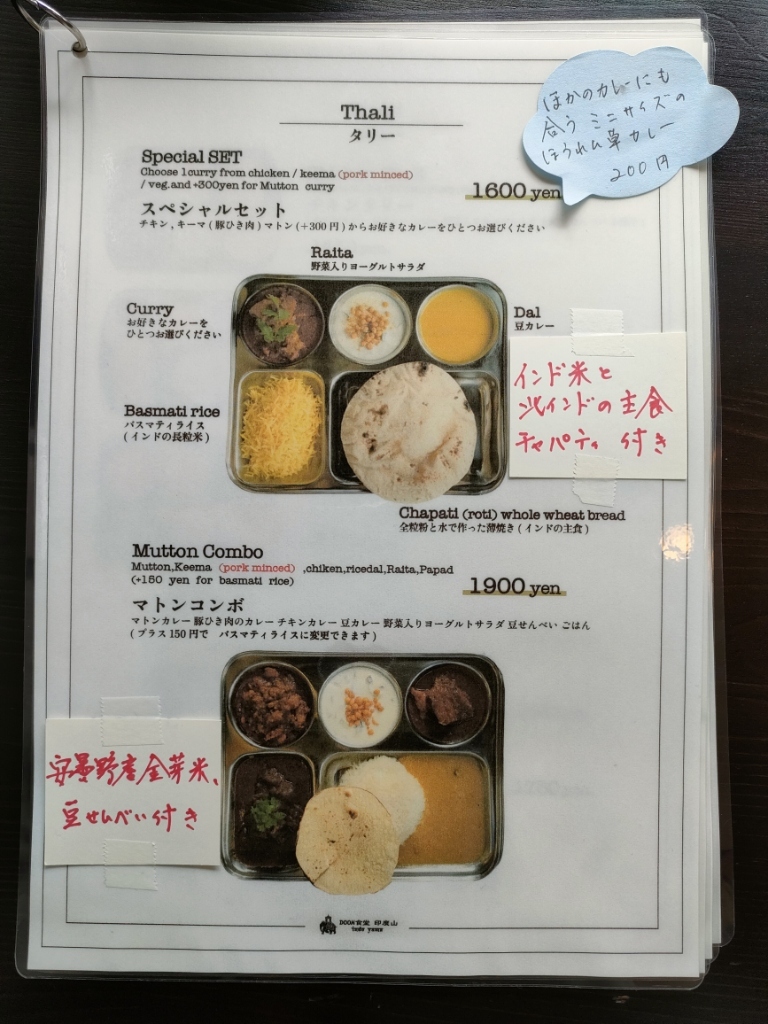 Thali
タリー
ほかのカレーにも
合う ミニサイズの
ほうれん草カレー
200円
Special SET
Choose 1curry from chicken / keema (pork minced)
/ veg.and +300yen for Mutton curry
1600 yen
スペシャルセット
チキン, キーマ ( 豚ひき肉 ) マトン ( +300 円 ) からお好きなカレーをひとつお選びください
Raita
野菜入りヨーグルトサラダ
Curry
お好きなカレーを
ひとつお選びください
Dal
豆カレー
インド米と
北インドの主食
チャパティ 付き
Basmati rice
バスマティライス
( インドの長粒米 )
Chapati (roti) whole wheat bread
全粒粉と水で作った薄焼き ( インドの主食 )
Mutton Combo
Mutton,Keema (pork minced) ,chiken,ricedal,Raita,Papad
(+150 yen for basmati rice)
1900 yen
マトンコンボ
マトンカレー 豚ひき肉のカレー チキンカレー 豆カレー 野菜入りヨーグルトサラダ 豆せんべい ごはん
( プラス 150 円で バスマティライスに変更できます )
安曇野産金芽米、
豆せんべい付き
DOON食堂 印度山